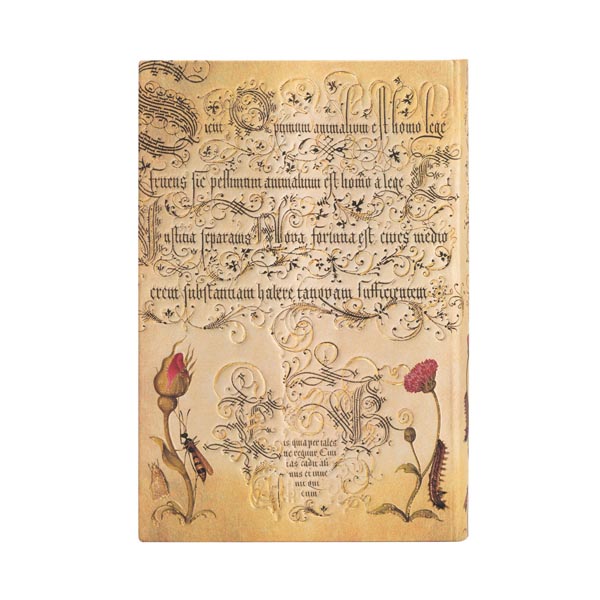 Sicut Optimum animalium est homo lege
fruens sic pessimum animalium est homo a lege E
Iustitia separatus Nova fortuna est cives medio
crem substantiam habere tanquam sufficientem
is quia per tales
ne regitur Civi
tas cadit ali